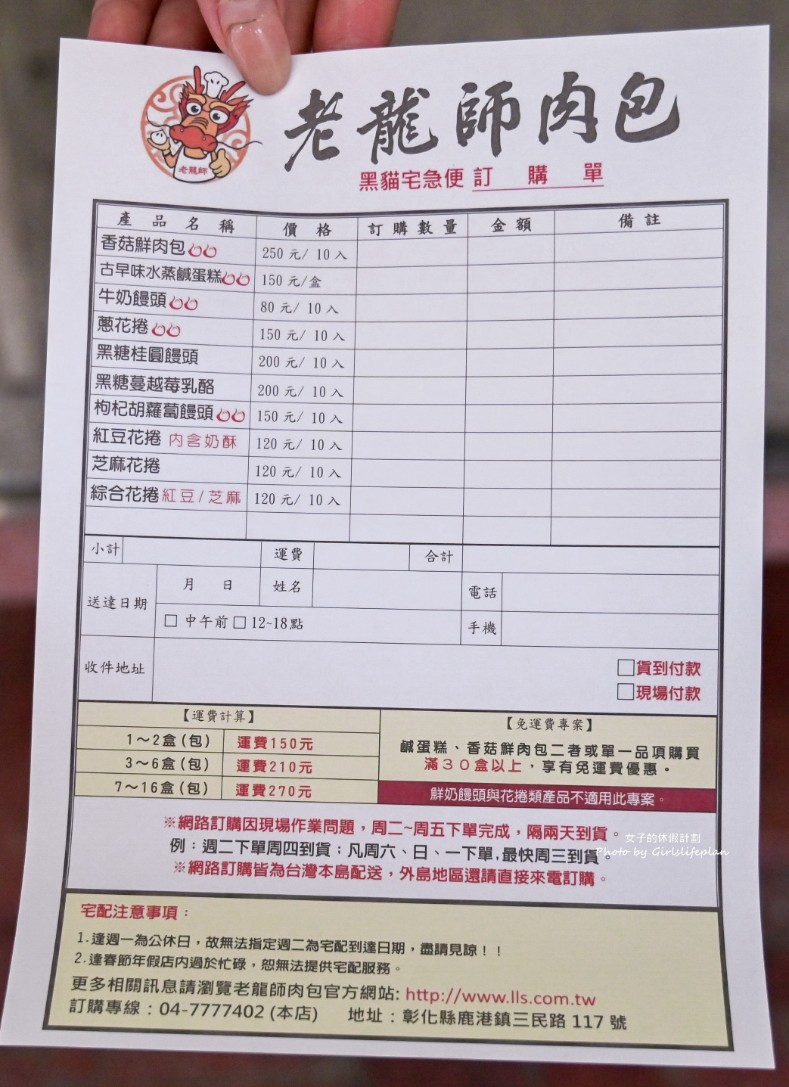 老龍師肉包
老龍師
黑貓宅急便 訂 購 單
產品名稱 價格 訂購數量 金額 備註
香菇鮮肉包 250元/10入
古早味水蒸鹹蛋糕 150元/盒
牛奶饅頭 80元/10入
蔥花捲 150元/10入
黑糖桂圓饅頭 200元/10入
黑糖蔓越莓乳酪 200元/10入
枸杞胡蘿蔔饅頭 150元/10入
紅豆花捲 內含奶酥 120元/10入
芝麻花捲 120元/10入
綜合花捲 紅豆/芝麻 120元/10入
小計 運費 合計
送達日期 月 日 姓名 電話
□ 中午前 □ 12~18點 手機
收件地址 □貨到付款
□現場付款
【運費計算】
1～2盒(包) 運費150元
3～6盒(包) 運費210元
7～16盒(包) 運費270元
【免運費專案】
鹹蛋糕、香菇鮮肉包二者或單一品項購買
滿30盒以上，享有免運費優惠。
鮮奶饅頭與花捲類產品不適用此專案。
※網路訂購因現場作業問題，周二~周五下單完成，隔兩天到貨。
例：週二下單周四到貨；凡周六、日、一下單,最快周三到貨。
※網路訂購皆為台灣本島配送，外島地區還請直接來電訂購。
女子的休假計劃
Photo by Girlslifeplan
宅配注意事項：
1.逢週一為公休日，故無法指定週二為宅配到達日期，盡請見諒！！
2.逢春節年假店內過於忙碌，恕無法提供宅配服務。
更多相關訊息請瀏覽老龍師肉包官方網站: http://www.lls.com.tw
訂購專線：04-7777402 (本店) 地址：彰化縣鹿港鎮三民路 117 號